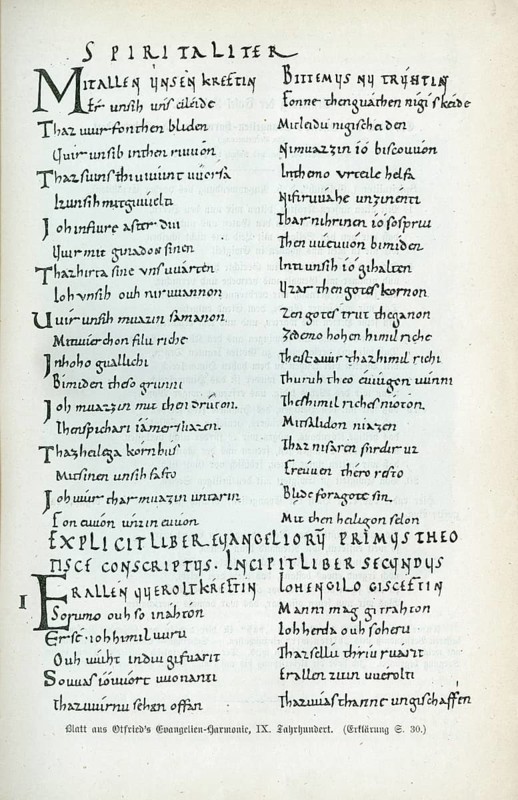 SPIRITALITER
MITALLEN UNSEN KREFTIN BITTEMUS NU TRUHTIN
Er unsih uns eileide Fonne thenguaten nigiskeide
Thaz uuir fon then bliden Mitleidu nigischeiden
Uuir unsih in then riuuon Nimuazzin io biscouuon
Inthemo urteile helfa
Nifiruuahe unzinenti
Joh infiure after diu Thar nihrinen io sospriu
Uuir mit ginadon sinen Then uueuuon bimiden
Thaz hirta sine uns uuarten Inti unsih io gihalten
Joh unsih ouh niruuannon Uzar then gotes kornon
Uuir unsih muazin samanon Zen gotes trut theganon
Mit uuerchon filu riche Zedemo hohen himilriche
Inhoho guallichi Theist auur thaz himilrichi
Bimiden theso grunni Thuruh theo euuigon uunni
Joh muazzin mit then druton Thes himilriches nioton
Then spichari iamer niazen Mit salidon niazen
Thaz heilega kornhus Thaz nifaren furdir uz
Mit sinen unsih fasto Freuuen thero resto
Joh uuir thar muazin untarin Blide foragote sin
Fon euuon unzin euuon Mit then heiligon selon
EXPLICIT LIBER EUANGELIORU PRIMUS THEO
TISCE CONSCRIPTUS. INCIPIT LIBER SECUNDUS
I ER ALLEN UUEROLTKREFTIN IOH ENGILO GISCEFTIN
So rumo ouh so inahton Manni mag gitrahton
Er se ioh himil uurti Ioh herda ouh so herti
Ouh uuiht indiu gifuarit Thaz sellu thriu ruarit
So uuas io uuort uuonanti Er allen zitin uuerolti
Thaz uuir nu sehen offan Thaz uuas thanne ungischaffen
Blatt aus Otfried's Evangelien-Harmonie, IX. Jahrhundert. (Erklärung S. 30.)